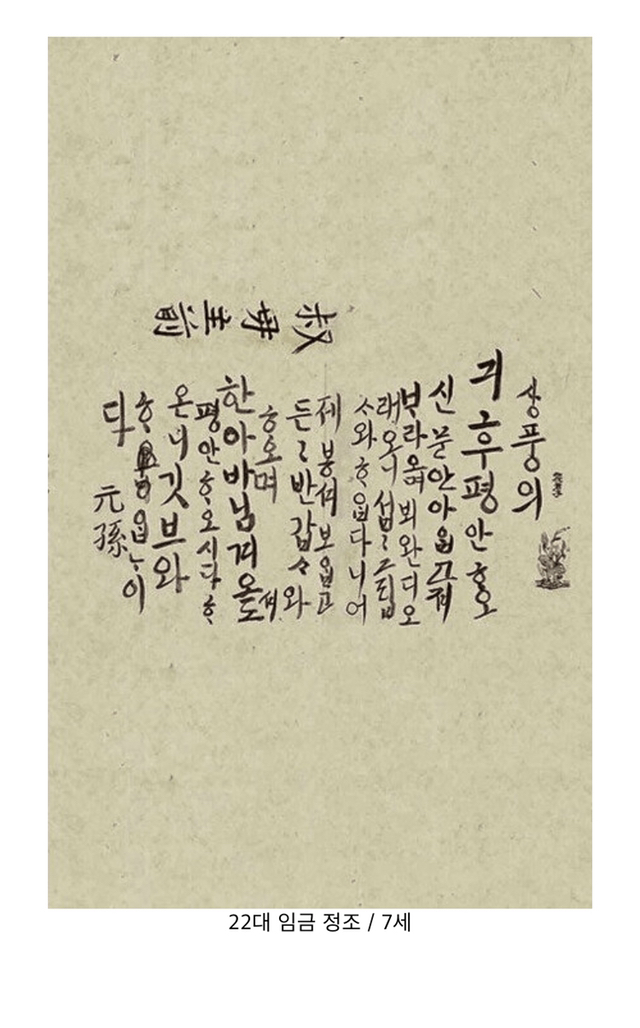 叔母主前
상풍의
긔후 평안ᄒᆞ오
신 문안 아ᄋᆞᆸ고져
ᄇᆞ라오며 뵈완 디 오
래오니 섭〻 그립
ᄉᆞ와 ᄒᆞᄋᆞᆸ다니 어
제 봉셔 보ᄋᆞᆸ고
든〻 반갑ᄉᆞ와
ᄒᆞ오며
한아바님 겨오셔도
평안ᄒᆞ오시다 ᄒᆞ
온니 깃브와
ᄒᆞᄋᆞᆸᄂᆞ이
다 元孫
22대 임금 정조 / 7세